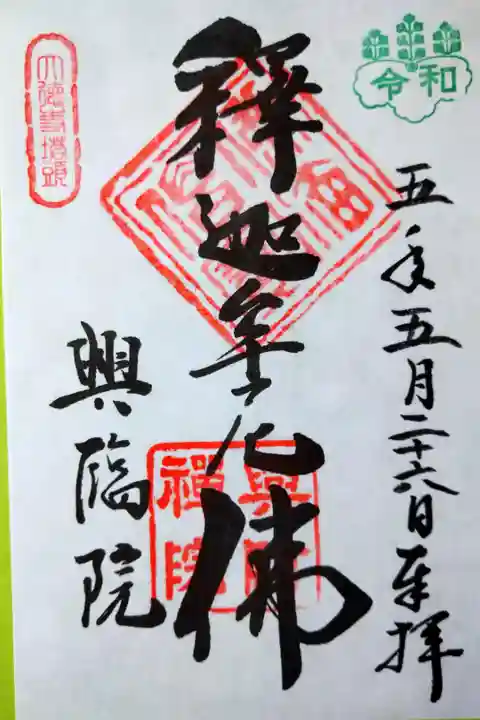 令和
五年五月二十六日奉拝
釋迦牟尼佛
興臨院
大徳寺塔頭
興臨
禅院